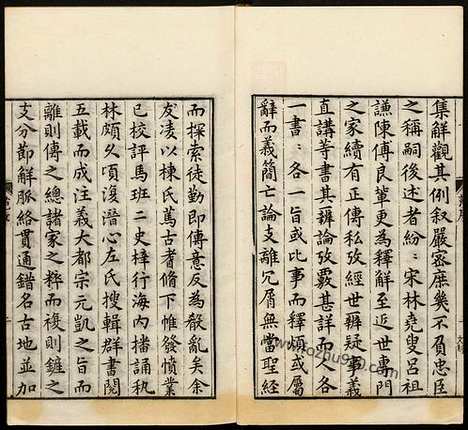 集解觀其例叙嚴密庶幾不負忠臣
之稱嗣後述者紛紛宋林堯叟呂祖
謙陳傅良輩更為釋解至我
之家續有正傳私攷經世辨疑事義
直講等書其辨論攷覈甚詳而人各
一書書各一旨或比事而釋煩或屬
辭而義簡亡論支離冗屑無當聖經
而探索徒勤即傳意反為殽亂矣余
友凌以棟氏篤古耆脩下帷發憤業
已校評馬班二史梓行海內播誦秇
林頗久項復潛心左氏搜輯群書閱
五載而成注義大都宗元凱之旨而
離則傳之總諸家之粹而複則鏟之
支分節解脈絡貫通錯名古地並加